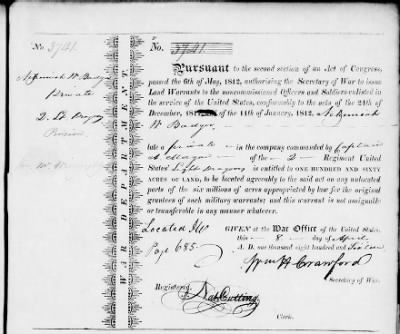 No. 3741.
No. 3741.
Private
WAR DEPARTMENT
Pursuant to the second section of an Act of Congress,
passed the 6th of May, 1812, authorising the Secretary of War to issue
Land Warrants to the noncommissioned Officers and Soldiers enlisted in
the service of the United States, conformably to the acts of the 24th of
December, and of the 11th of January, 1812,
W Badger
late a private in the company commanded by Captain
of the 2 Regiment United
States' Light Dragoons is entitled to ONE HUNDRED AND SIXTY
ACRES OF LAND, to be located agreeably to the said act on any unlocated
parts of the six millions of acres appropriated by law for the original
grantees of such military warrants; and this warrant is not assignable
or transferable in any manner whatever.
Located Ill
Page 685
GIVEN at the War Office of the United States,
this 8 day of April
A. D. one thousand eight hundred and Sixteen
Wm H Crawford
Secretary of War.
Registered,
Nat Cutting
Clerk.